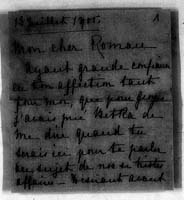 13 Juillet 1901. 1
Mon cher Roman
Ayant grande confiance
en ton affection tant
pour moi, que pour
j'avais prié de
me dire quand tu
serais ici pour te parler
au sujet de nos si tristes
affaires - avant